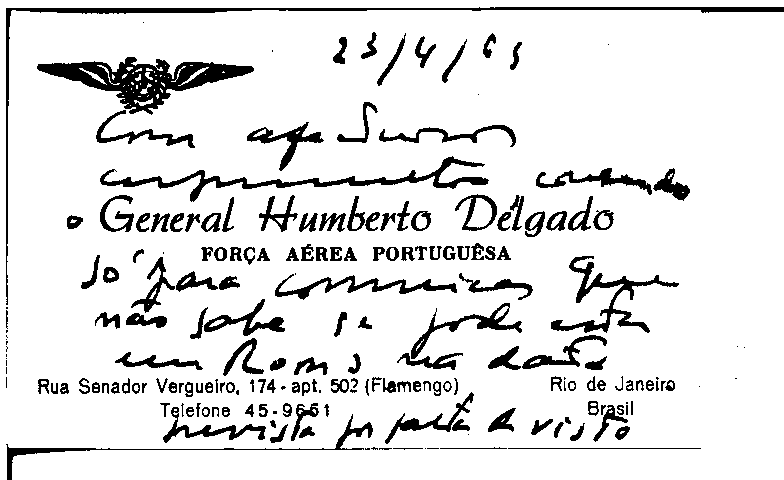 23/4/63
Com afectuosos
cumprimentos
o General Humberto Delgado
FORÇA AÉREA PORTUGUÊSA
só para comunicar que
não sabe se pode estar
em Roma na data
Rua Senador Vergueiro, 174 - apt. 502 (Flamengo) Rio de Janeiro
Telefone 45-9661 Brasil
prevista por falta de visto